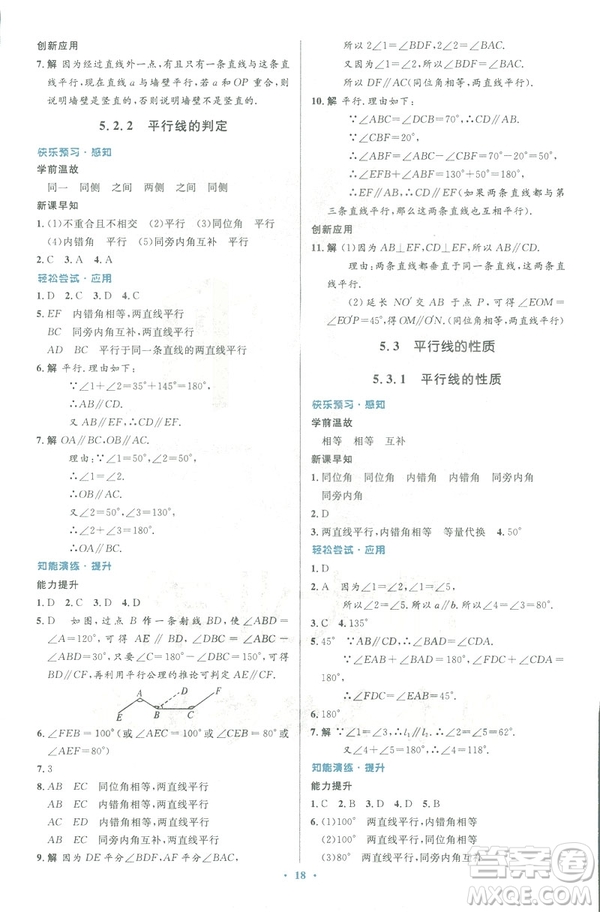 创新应用
7. 解 因为经过直线外一点,有且只有一条直线与这条直
线平行,现在测得 a 与墙壁平行,若 a 和 OP 重合,则
说明墙壁是竖直的,否则说明墙壁不是竖直的.
5.2.2 平行线的判定
快乐预习·感知
学前温故
同一 同侧 之间 两侧 之间 同侧
新课早知
1. (1)不重合且不相交 (2)平行 (3)同位角 平行
(4)内错角 平行 (5)同旁内角互补 平行
2. C 3. A 4. A
轻松尝试·应用
1. D 2. D 3. D 4. C
5. EF 内错角相等,两直线平行
BC 同旁内角互补,两直线平行
AD BC 平行于同一条直线的两直线平行
6. 解 平行.理由如下:
∵∠1+∠2=180°,
∴AB∥CD.
又∵AB∥EF,∴CD∥EF.
7. 解 OA∥BC,OB∥AC.
理由:∵∠1=50°,∠2=50°,
∴∠1=∠2.
∴OB∥AC.
又∵∠2=50°,∠3=130°,
∴∠2+∠3=180°.
∴OA∥BC.
知能演练·提升
能力提升
1. D 2. C 3. D 4. D
5. D 如图,过点 B 作一条射线 BD,使∠ABD=
∠A=120°,可得 AE∥BD,∠DBC=∠ABC-
∠ABD=150°-120°=30°,又∠DBC+∠C=180°,故
BD∥CF,再利用平行公理的推论可判定 AE∥CF.
A D F
E B C
6. ∠FEB=100°(或∠AEC=100°或∠BEC=80°或
∠AEF=80°)
7. 3
8. AB EC 同位角相等,两直线平行
AB EC 内错角相等,两直线平行
AC ED 内错角相等,两直线平行
AB EC 同旁内角互补,两直线平行
9. 解 因为 DE 平分∠BDF,AF 平分∠BAC,
所以 2∠1=∠BDF,2∠2=∠BAC.
又因为∠1=∠2,所以∠BDF=∠BAC.
所以 DF∥AC(同位角相等,两直线平行).
10. 解 平行.理由如下:
∵∠ABC=70°,∠BCD=70°,
∴∠ABC=∠BCD.∴AB∥CD.
∵∠BCE=20°,∴∠ECD=50°.
∵∠CEF=130°,∴∠E+∠DCE=180°.
∴EF∥CD.
∴AB∥EF(如果两条直线都与第
三条直线平行,那么这两条直线也互相平行).
创新应用
11. 解 (1)因为 AB⊥EF,CD⊥EF,所以 AB∥CD.
理由:两条直线都垂直于同一条直线,这两条直
线平行.
(2)延长 NO′交 AB 于点 P,可得∠EOM=
∠EO′P=45°,得 OM∥O′N.(同位角相等,两直线平行)
5.3 平行线的性质
5.3.1 平行线的性质
快乐预习·感知
学前温故
相等 相等 互补
新课早知
1. 同位角 同位角 内错角 内错角 同旁内角
同旁内角
2. D
3. 两直线平行,内错角相等 等量代换 4. 50°
轻松尝试·应用
1. D 2. A
3. D ∵∠1=∠2,∴a∥b.∴∠3=∠4.
所以∠1=∠2,∠3=∠4.
4. C 4. 135°
5. 45° ∵AB∥CD,∴∠ABC=∠DCF.
又∵∠ABC=45°,∴∠DCF=45°.
∵CD∥EF,
∴∠FDC=∠CFE.∴∠FDC=45°.
6. 180°
7. 解 ∵∠1=∠2,∴l₁∥l₂.∴∠3+∠5=180°.
∵∠4=∠5=62°,
∴∠3+∠4=180°,∴∠4=62°.
知能演练·提升
1. C 2. B 3. D 4. D 5. B
6. (1)100° 两直线平行,内错角相等
(2)100° 两直线平行,同位角相等
(3)80° 两直线平行,同旁内角互补
18
答案圈